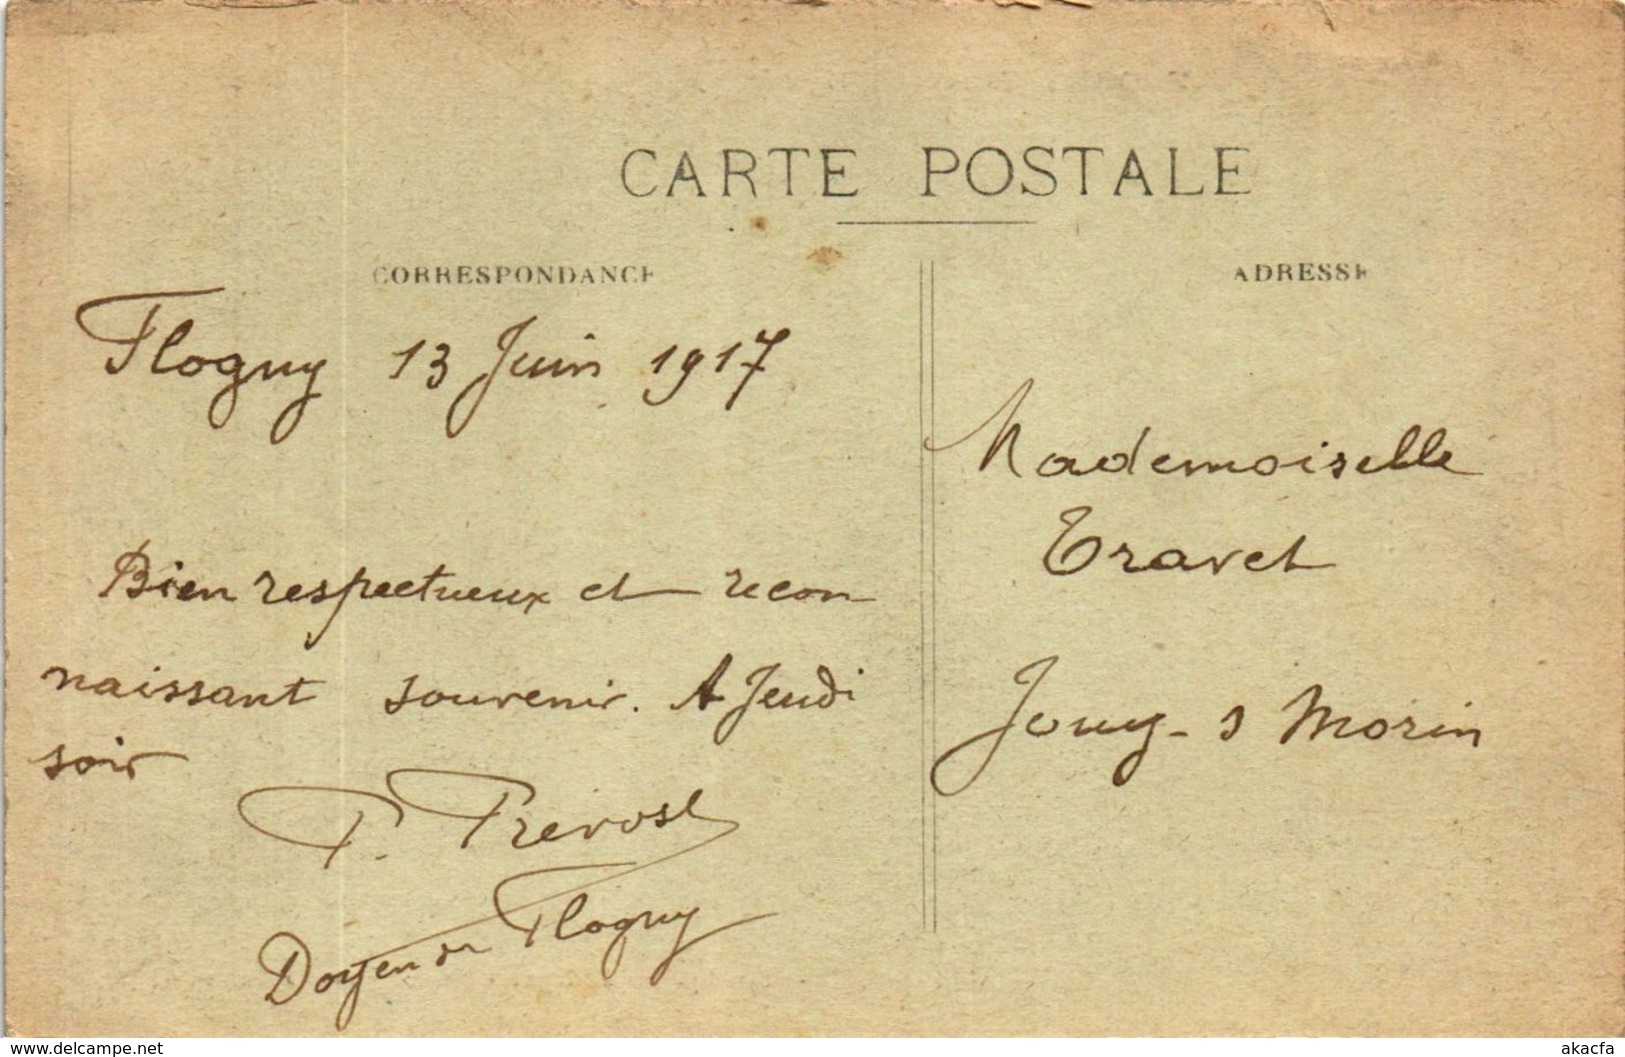 CARTE POSTALE
CORRESPONDANCE
ADRESSE
Flogny 13 Juin 1917
Bien respectueux et recon
naissant souvenir. A Jeudi
soir
P. Prévost
Doyen de Flogny
Mademoiselle
Travet
Jouy-s Morin
www.delcampe.net
akacfa